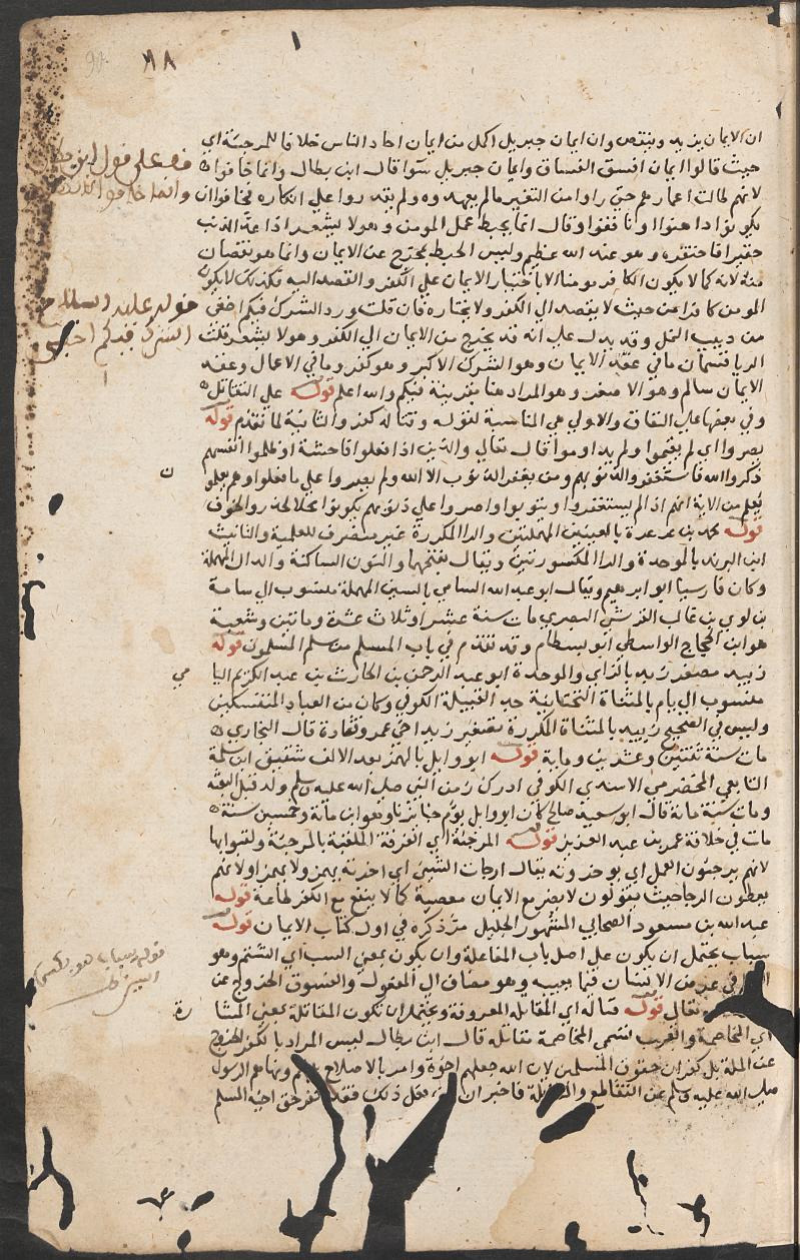 ٩٨
90
ان الايمان يزيد وينقص وان ايمان جبريل اكمل من ايمان احاد الناس خلافا للمرجئة اي
حيث قالوا ايمان افسق الفساق وايمان جبريل سوا قال ابن بطال وانما خافوا
لانهم طالت اعمارهم حتي راوا من التغيير مالم يعهدوه ولم يقدروا علي انكاره فخافوا ان
يكونوا داهنوا او نافقوا وقال انما يحبط عمل المومن وهو لا يشعر اذا عد الذنب
حقيرا فاحتقره وهو عند الله عظيم وليس الحبط بمخرج عن الايمان وانما هو نقصان
منه لانه كما لا يكون الكافر مومنا الا باختيار الايمان علي الكفر والقصد اليه فكذلك لا يكون
المومن كافرا من حيث لا يقصد الي الكفر ولا يختاره فان قلت ورد الشرك فيكم اخفي
من دبيب النمل وقد يدل علي انه قد يخرج من الايمان الي الكفر وهو لا يشعر قلت
الريا قسمان ما في عقد الايمان وهو الشرك الاكبر وهو كفر وما في الاعمال وعقد
الايمان سالم وهو الاصغر وهو المراد هنا بقرينة فيكم والله اعلم قوله علي التقاتل
وفي بعضها علي النفاق والاولي هي المناسبة لقوله وقتاله كفر والثانية لما تقدم قوله
يصروا اي لم يقيموا ولم يداوموا قال تعالي والذين اذا فعلوا فاحشة او ظلموا انفسهم
ذكروا الله فاستغفروا لذنوبهم ومن يغفر الذنوب الا الله ولم يصروا علي ما فعلوا وهم يعلمون
يعلم من الاية انهم اذا لم يستغفروا ويتوبوا واصروا علي ذنوبهم يكونوا محلا للحذر والخوف
قوله محمد بن عرعرة بالعينين المهملتين والرا المكررة غير منصرف للعلمية والتانيث
ابن البرند بالموحدة والرا المكسورتين ويقال بفتحهما والنون الساكنة والدال المهملة
وكان فارسيا ابو ابرهيم ويقال ابو عبد الله السامي بالسين المهملة منسوب الي سامة
بن لوي بن غالب القرشي البصري مات سنة عشر او ثلاث عشرة وماتين وشعبة
هو ابن الحجاج الواسطي ابو بسطام وقد تقدم في باب المسلم من سلم المسلمون قوله
زبيد مصغر زبد بالزاي والموحدة ابو عبد الرحمن بن الحارث بن عبد الكريم اليامي
منسوب الي يام بالمثناة التحتانية جد القبيلة الكوفي وكان من العباد المتنسكين
وليس في الصحيح زييد بالمثناة المكررة تصغير زيد اخي عمرو ثقادة قال البخاري
مات سنة ثنتين وعشرين وماية قوله ابو وايل بالهمز بعد الالف شقيق ابن سلمة
التابعي المخضرمي الاسدي الكوفي ادرك زمن النبي صلي الله عليه وسلم ولد قبل البعثة
ومات سنة مائة قال ابو سعيد صالح كان ابو وايل يؤم جنايزنا وهو ابن مائة وخمسين سنة
مات في خلافة عمر بن عبد العزيز قوله المرجئة اي الفرقة الملقبة بالمرجئة ولقبوا بها
لانهم يرجئون العمل اي يوخرونه يقال ارجات الشيئ اي اخرته يهمز ولا يهمز او لانهم
يعطون الرجا حيث يقولون لا يضر مع الايمان معصية كما لا ينفع مع الكفر طاعة قوله
عبد الله بن مسعود الصحابي المشهور الجليل مر ذكره في اول كتاب الايمان قوله
سباب يحتمل ان يكون علي اصل باب المفاعلة وان يكون بمعني السب اي الشتم وهو
في عرض الانسان بما يعيبه وهو مضاف الي المفعول والفسوق الخروج عن
تعالي قوله قتاله اي المقاتلة المعروفة ويحتمل ان تكون المقاتلة بمعني المشارة
اي المخاصمة والعرب تسمي المخاصمة مقاتلة قال ابن بطال ليس المراد بالكفر الخروج
عن الملة بل كفران حقوق المسلمين لان الله جعلهم اخوة وامر بالاصلاح بينهم ونهاهم الرسول
صلي الله عليه وسلم عن التقاطع والمقاتلة فاخبر ان من فعل ذلك فقد كفر حق اخيه المسلم
علي قول ابن بطال
وانما خافوا لانهم
قوله عليه السلام
الشرك فيكم اخفي
قوله سباب هو بكسر
السين